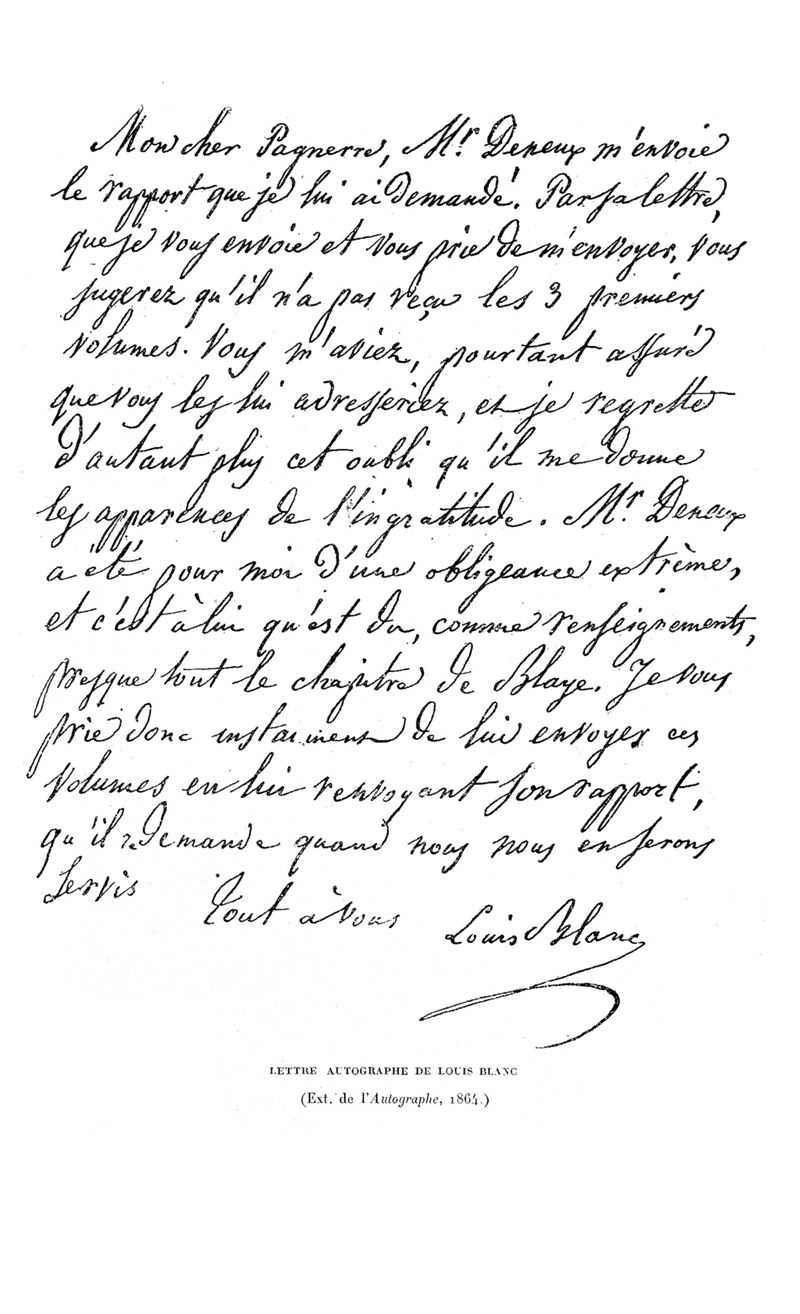 Mon cher Pagnerre, Mr. Deneux m'envoie
le rapport que je lui ai demandé. Par sa lettre,
que je vous envoie et vous prie de m'envoyer, vous
jugerez qu'il n'a pas reçu les 3 premiers
volumes. Vous m'aviez, pourtant assuré
que vous les lui adresseriez, et je regrette
d'autant plus cet oubli qu'il me donne
les apparences de l'ingratitude. Mr. Deneux
a été pour moi d'une obligeance extrème,
et c'est à lui qu'est du, comme renseignements,
presque tout le chapitre de Blaye. Je vous
prie donc instamment de lui envoyer ces
volumes en lui renvoyant son rapport,
qu'il redemande quand nous nous en serons
servis
Tout à vous
Louis Blanc
LETTRE AUTOGRAPHE DE LOUIS BLANC
(Ext. de l'Autographe, 1864.)